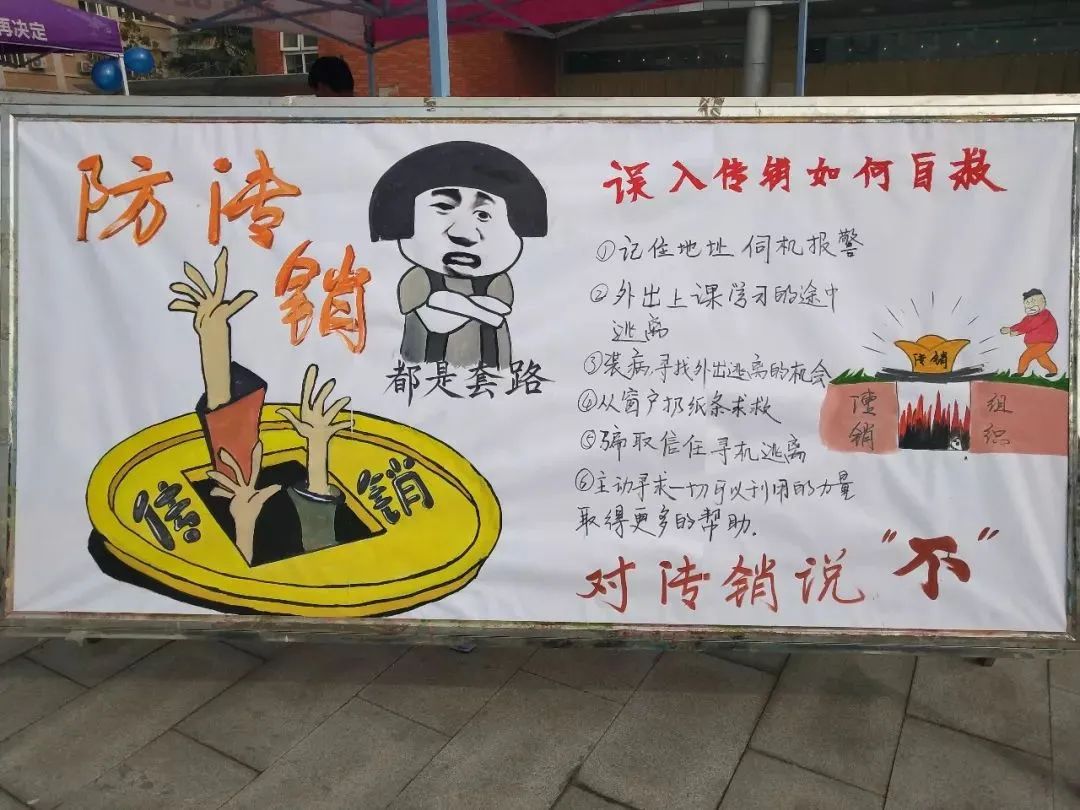 再决定
防传
销
都是套路
传销
误入传销如何自救
①记住地址 伺机报警
②外出上课学习的途中
逃离
③装病,寻找外出逃离的机会
④从窗户扔纸条求救
⑤骗取信任寻机逃离
⑥主动寻求一切可以利用的力量
取得更多的帮助.
传销
传销
组织
对传销说"不"